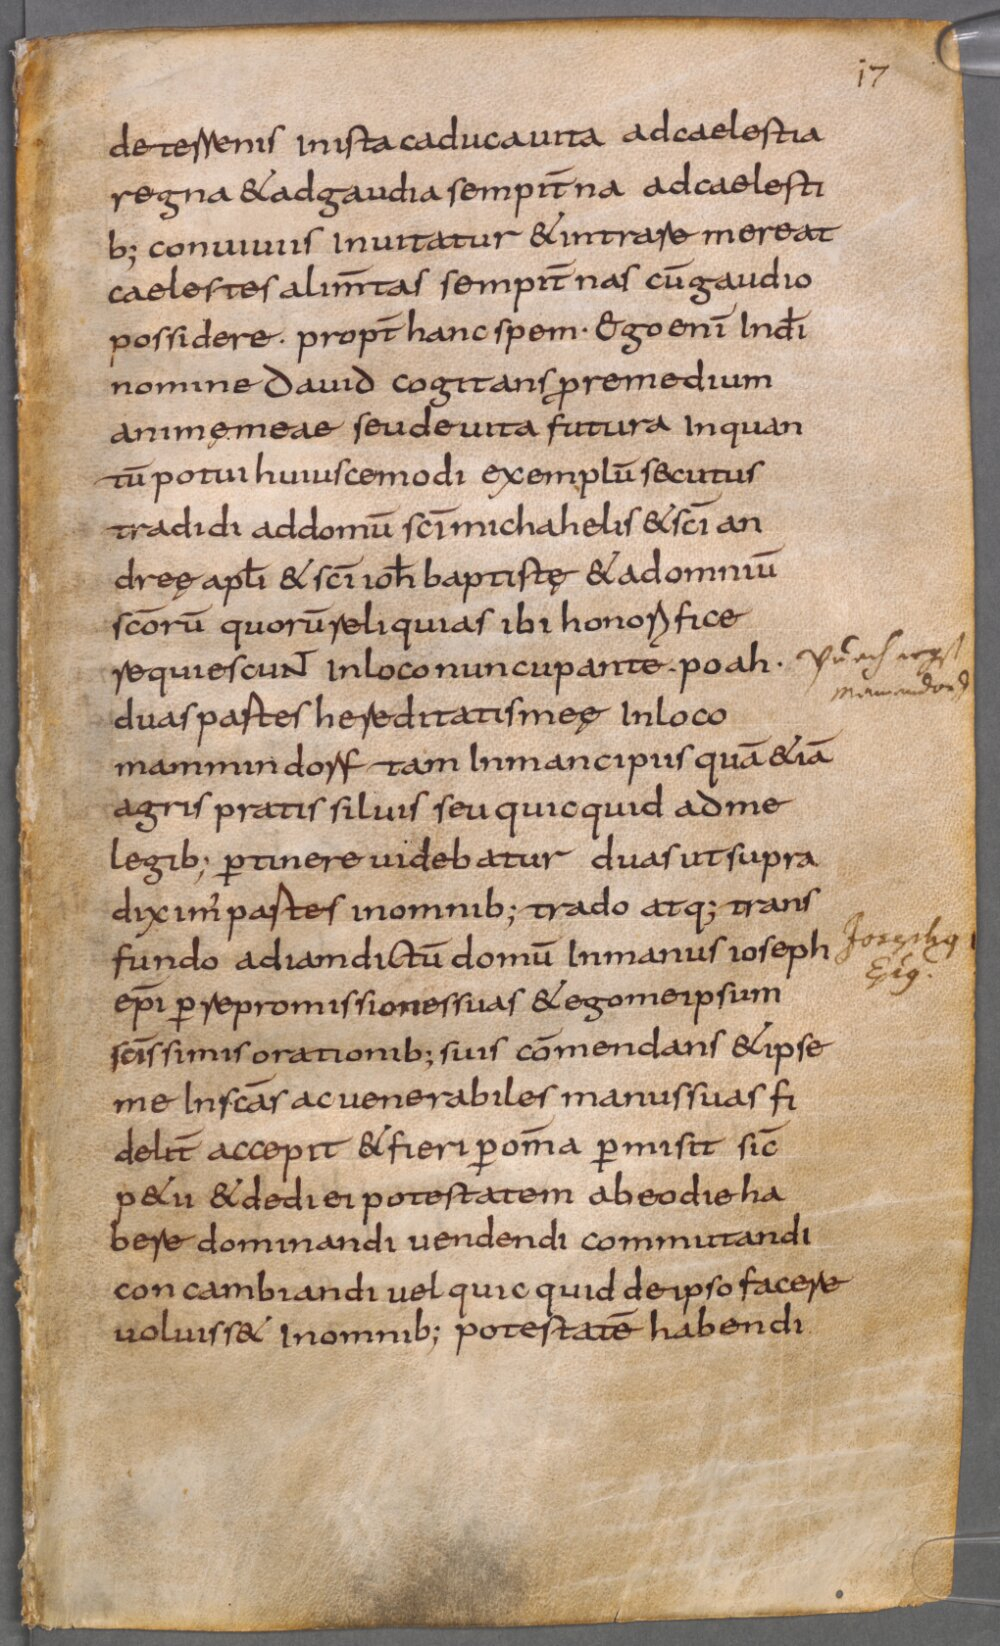 17
de terrenis in ista caduca uita ad caelestia
regna & ad gaudia sempit̄na ad caelesti
b; conuiuiis inuitatur & intrare mereat
caelestes alim̄tas sempit̄nas cū gaudio
possidere. propt̄ hanc spem. Ego enī In dī
nomine Dauid cogitans ꝓ remedium
animę meae seu de uita futura In quan
tū potui huiuscemodi exemplū secutus
tradidi ad domū sc̄i michahelis & sc̄i an
dreę apłi & sc̄i ioh̄ baptistę & ad omniū
sc̄orū quorū reliquias ibi honorifice
requiescuNT In loco nuncupante. poah.
duas partes hereditatis meę In loco
mammindorf tam In mancipiis quā & iā
agris pratis siluis seu quicquid ad me
legib; ꝑtinere uidebatur duas ut supra
dixim' partes in omnib; trado atq; trans
fundo ad iam dictū domū In manus ioseph
ep̄i ꝑ repromissiones suas & ego meipsum
sc̄issimis orationib; suis cōmendans & ipse
me In sc̄as ac uenerabiles manus suas fi
delit̄ accepit & fieri ꝑ om̄a ꝑmisit sic̄
p&ii & dedi ei potestatem ab eo die ha
bere dominandi uendendi commutandi
concambiandi uel quicquid de ipso facere
uoluiss& In omnib; potestatē habendi
Josephq
Ep̄q.